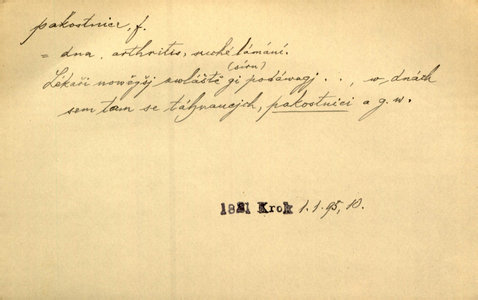 pakostnice, f.
= dna, arthritis, suché lámání.
(síru)
Lékaři nowěgšj zwláště gi podáwagj . . , w dnách
sem tam se táhnaucjch, pakostnici a g. w.
1821 Krok 1.1.95, 10.